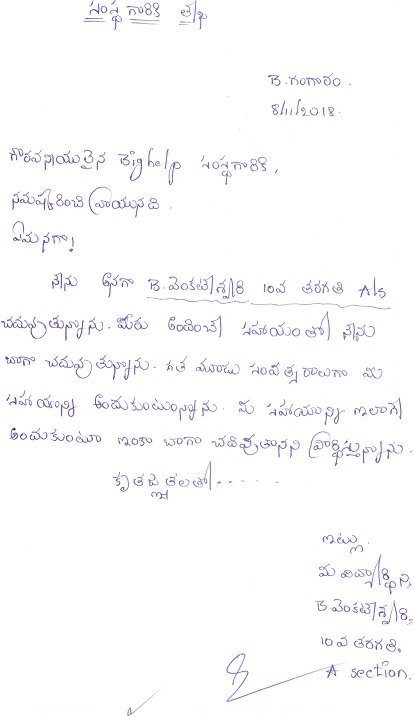 సంస్థ గారికి
B. గంగారం.
8/11/2018.
గౌరవనీయులైన Bighelp సంస్థగారికి,
నమష్కరించి వ్రాయునది.
ఏమనగా!
నేను అనగా B. వెంకటేశ్వరి 10వ తరగతి A/s
చదువుతున్నాను. మీరు అందించే సహాయంతో నేను
బాగా చదువుతున్నాను. గత మూడు సంవత్సరాలుగా మీ
సహాయాన్ని అందుకుంటున్నాను. మీ సహాయాన్ని ఇలాగే
అందుకుంటూ ఇంకా బాగా చదివుతానని ప్రార్థిస్తున్నాను.
కృతజ్ఞతలతో.....
ఇట్లు
మీ విద్యార్థిని,
B వెంకటేశ్వరి,
10వ తరగతి.
A section.